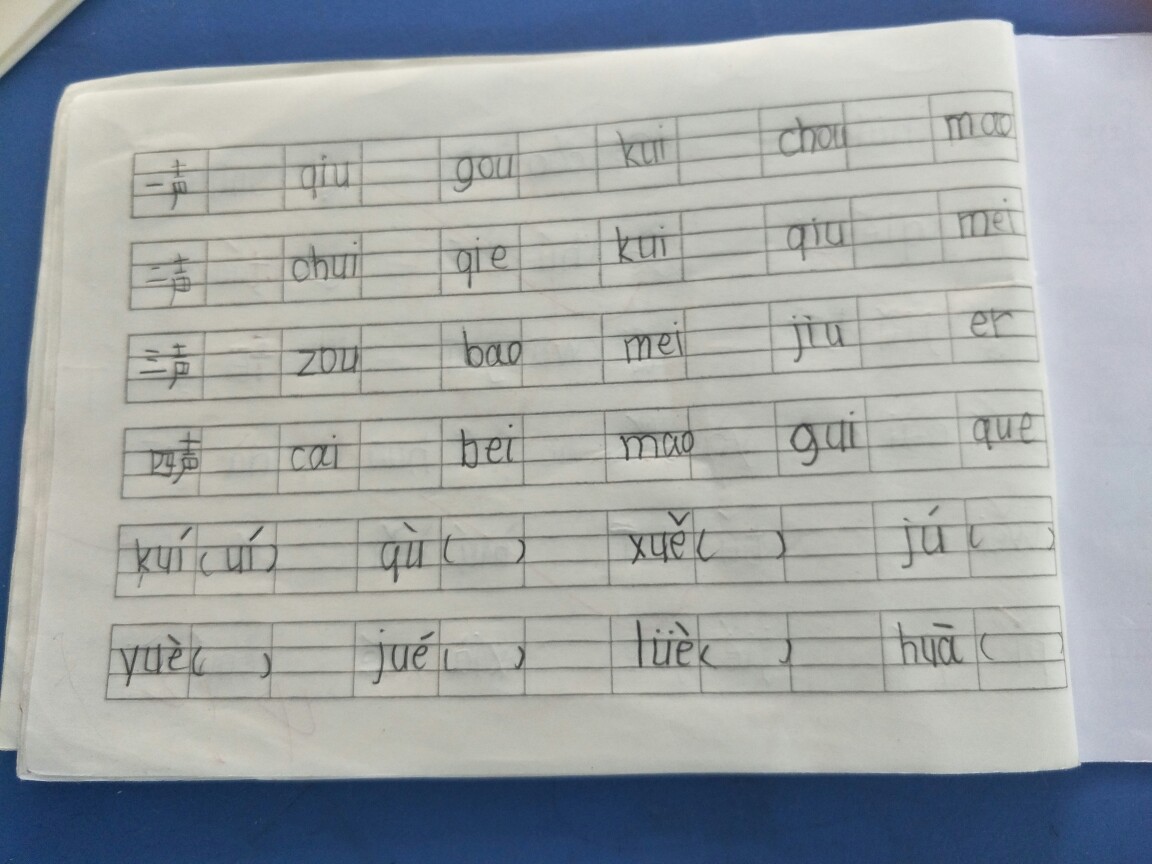 一声 qiu gou kui chou mao
二声 chui qie kui qiu mei
三声 zou bao mei jiu er
四声 cai bei mao gui que
kuí(uí) qù( ) xuě( ) jú( )
yuè( ) jué( ) lüè( ) huā( )